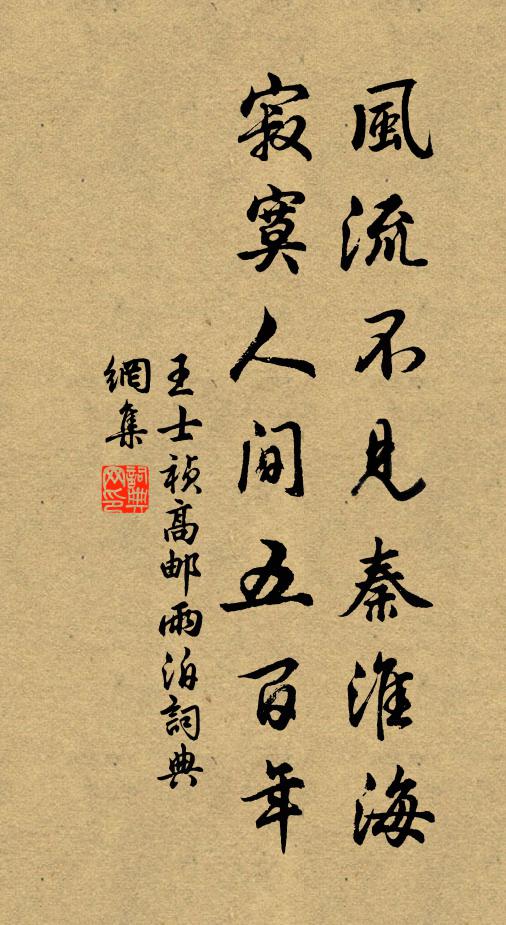 風流不見秦淮海
寂寞人間五百年
王士禎高邮雨泊詞典
網集
詞典
網印